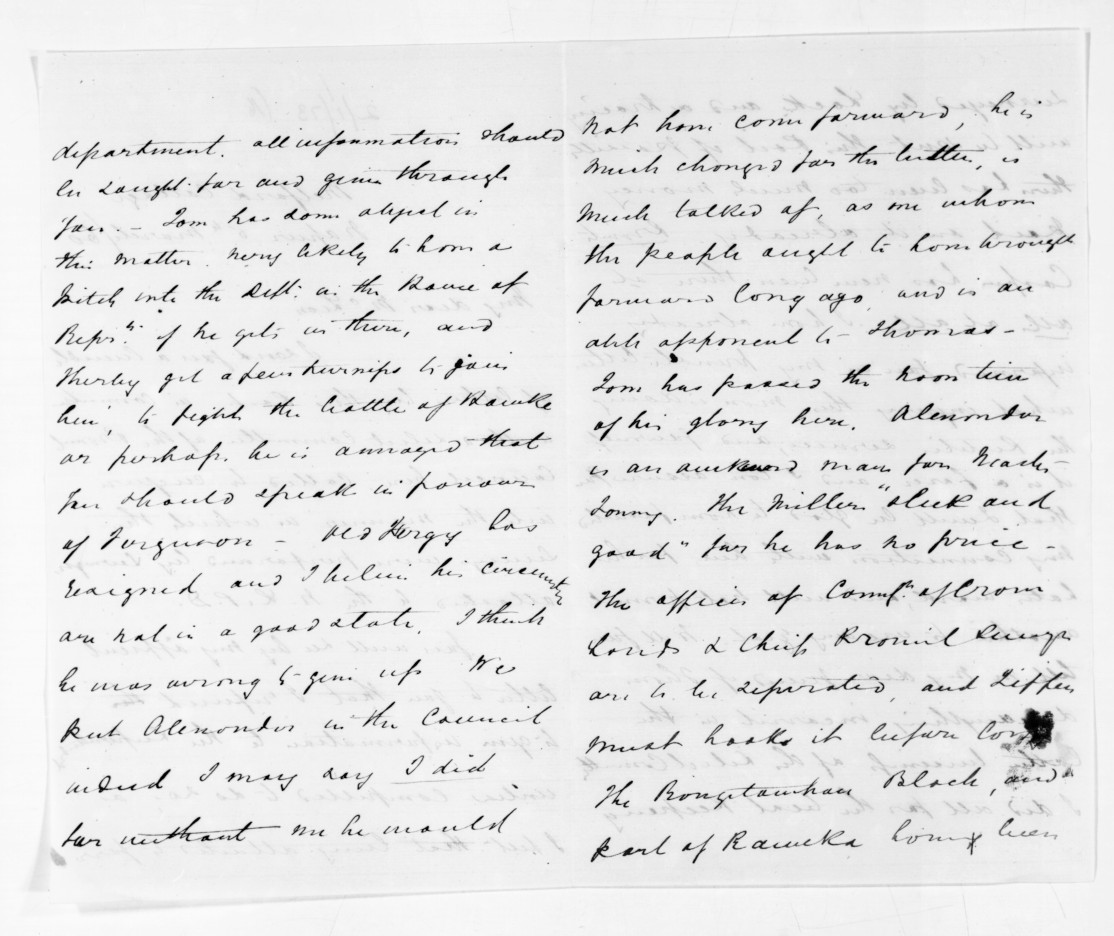 department. all information should
be sought for and given through
you. – Tom has some object in
this matter. very likely to have a
pitch into the Dept. in the House of
Repsves. if he gets in there, and
thereby get a few turnips to join
him, to fight the battle of Hawke
or perhaps he is annoyed that
you should speak in favour
of Ferguson – Old Fergy has
resigned and I believe his circumstces
are not in a good state, I think
he was wrong to give up We
put Alexander in the Council
indeed I may say I did
for without me he would
not have come forward, he is
much changed for the better, is
much talked of, as one whom
the people ought to have brought
forward long ago, and is an
able opponent to Thomas –
Tom has passed the noon tide
of his glory here. Alexander
is an awkward man for Master
Tommy. The Miller "sleek and
good" for he has no price –
The offices of Commr. of Crown
Lands & Chief Provincil Surveyr
are to be seperated, and Tiffen
must hook it before long
The Rongotawhau Block, and
part of Raweka having been